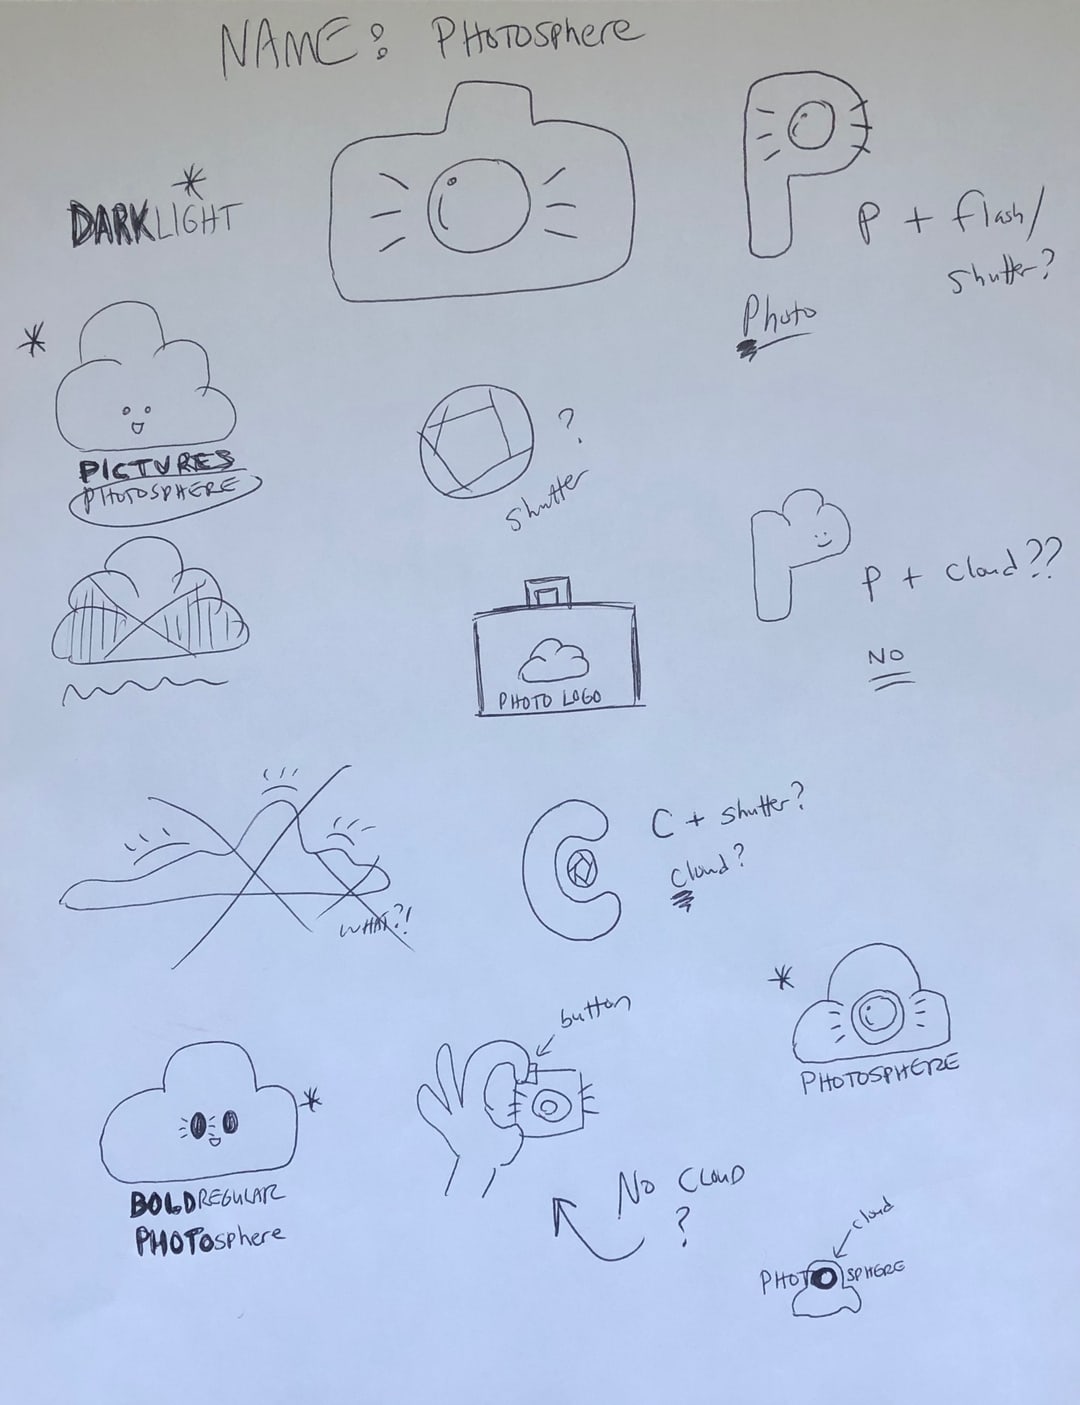 NAME: PHOTOSPHERE
DARKLIGHT
P + flash/
shutter?
Photo
PICTURES
PHOTOSPHERE
?
shutter
P + cloud??
NO
PHOTO LOGO
C + shutter?
cloud?
WHAT?!
PHOTOSPHERE
button
BOLDREGULAR
PHOTOsphere
No CLOUD
?
cloud
PHOTOSPHERE